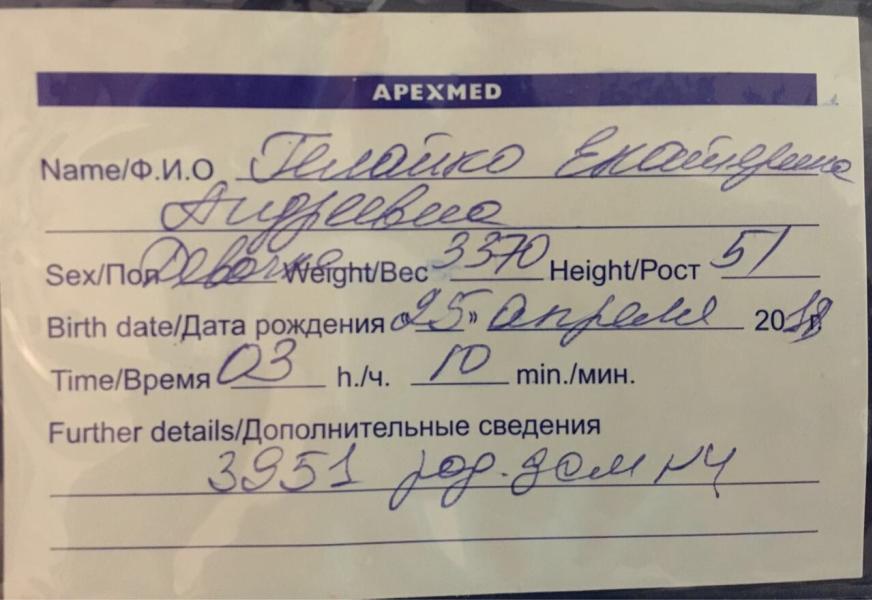 APEXMED
Name/Ф.И.О Гелайко Екатерина
Андреевна
Sex/Пол Девочка Weight/Вес 3370 Height/Рост 51
Birth date/Дата рождения «25» апреля 2018 г.
Time/Время 03 h./ч. 10 min./мин.
Further details/Дополнительные сведения
3951 род. дом №4